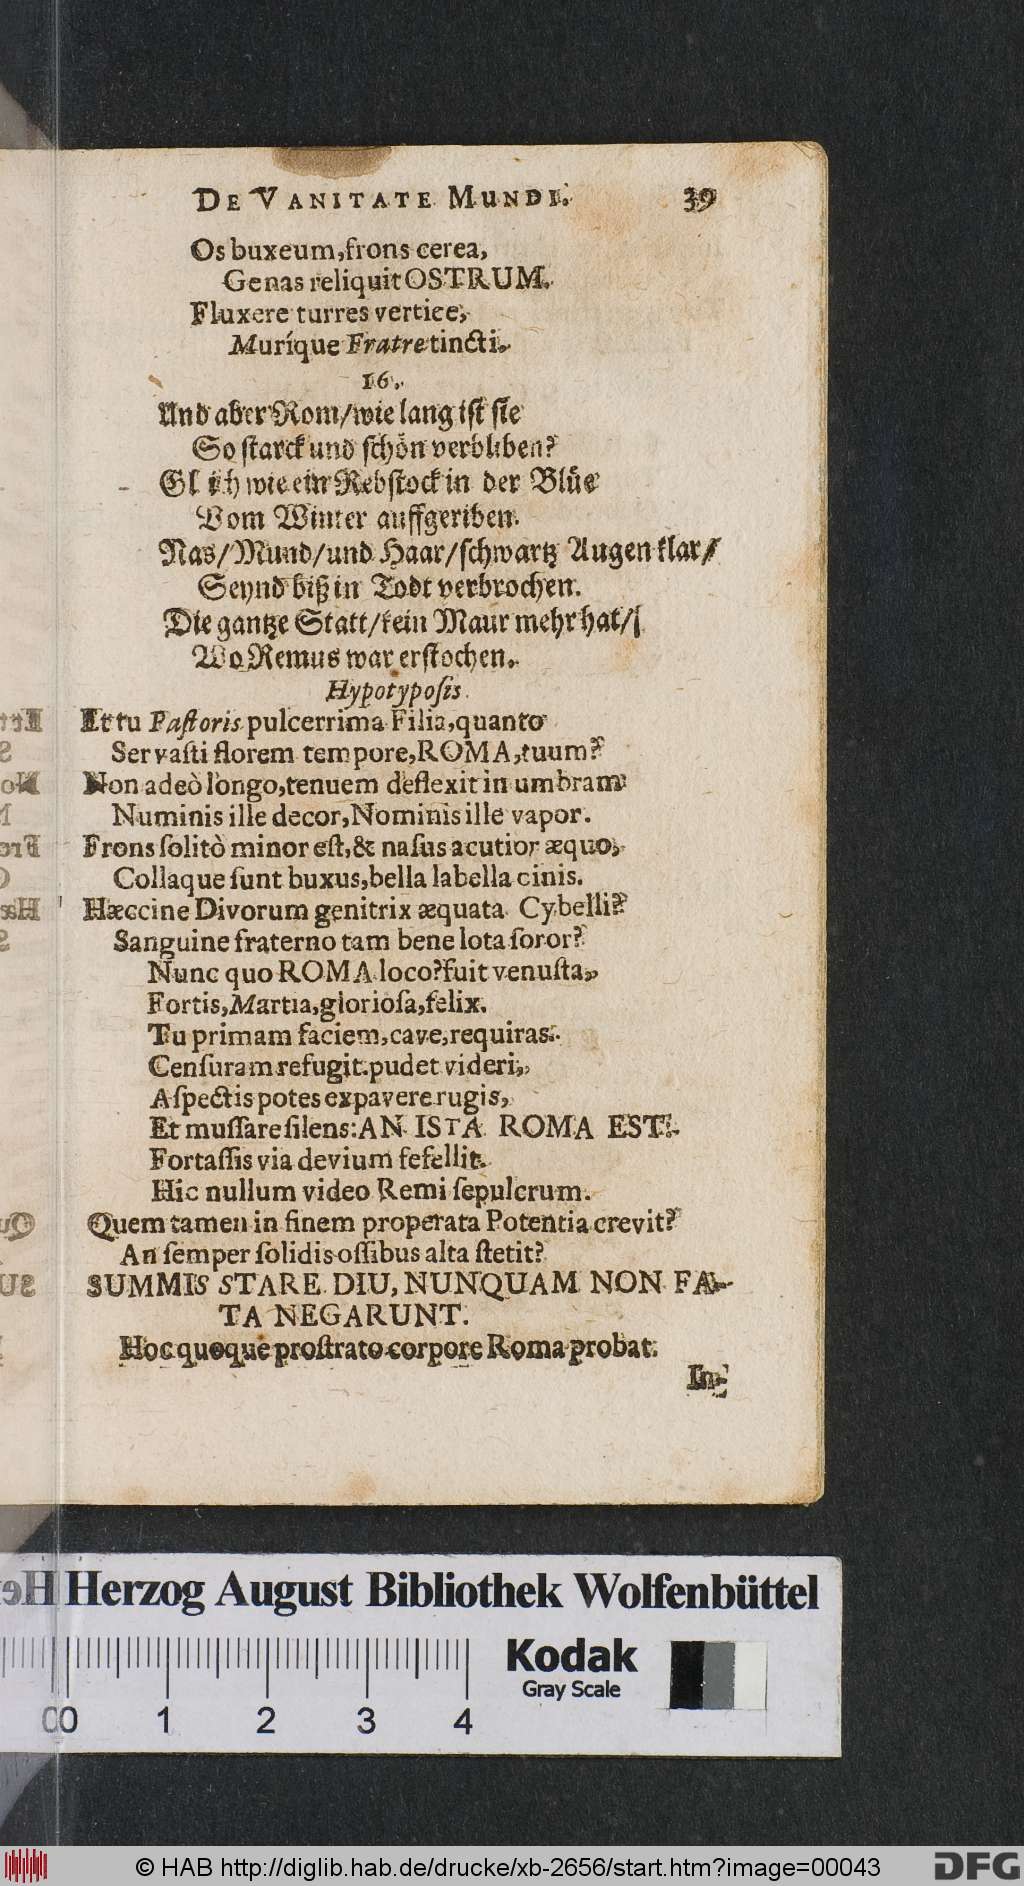 DE VANITATE MUNDI. 39
Os buxeum, frons cerea,
Genas reliquit OSTRUM.
Fluxere turres vertice,
Muríque Fratre tincti.
16.
Und aber Rom/ wie lang ist sie
So starck und schön verbliben?
Gl ich wie ein Rebstock in der Blüe
Vom Winter auffgeriben.
Nas/ Mund/ und Haar/ schwartz Augen klar/
Seynd biß in Todt verbrochen.
Die gantze Statt/ kein Maur mehr hat/
Wo Remus war erstochen.
Hypotyposis.
Et tu Pastoris pulcerrima Filia, quanto
Servasti florem tempore, ROMA, tuum?
Non adeò longo, tenuem deflexit in umbram
Numinis ille decor, Nominis ille vapor.
Frons solitò minor est, & nasus acutior æquo,
Collaque sunt buxus, bella labella cinis.
Hæccine Divorum genitrix æquata Cybelli?
Sanguine fraterno tam bene lota soror?
Nunc quo ROMA loco? fuit venusta,
Fortis, Martia, gloriosa, felix.
Tu primam faciem, cave, requiras.
Censuram refugit. pudet videri,
Aspectis potes expavere rugis,
Et mussare silens: AN ISTA ROMA EST?
Fortassis via devium fefellit.
Hic nullum video Remi sepulcrum.
Quem tamen in finem properata Potentia crevit?
An semper solidis ossibus alta stetit?
SUMMIS STARE DIU, NUNQUAM NON FA-
TA NEGARUNT.
Hoc quoque prostrato corpore Roma probat.
In-
Herzog August Bibliothek Wolfenbüttel
Kodak
Gray Scale
0 1 2 3 4
© HAB http://diglib.hab.de/drucke/xb-2656/start.htm?image=00043
DFG